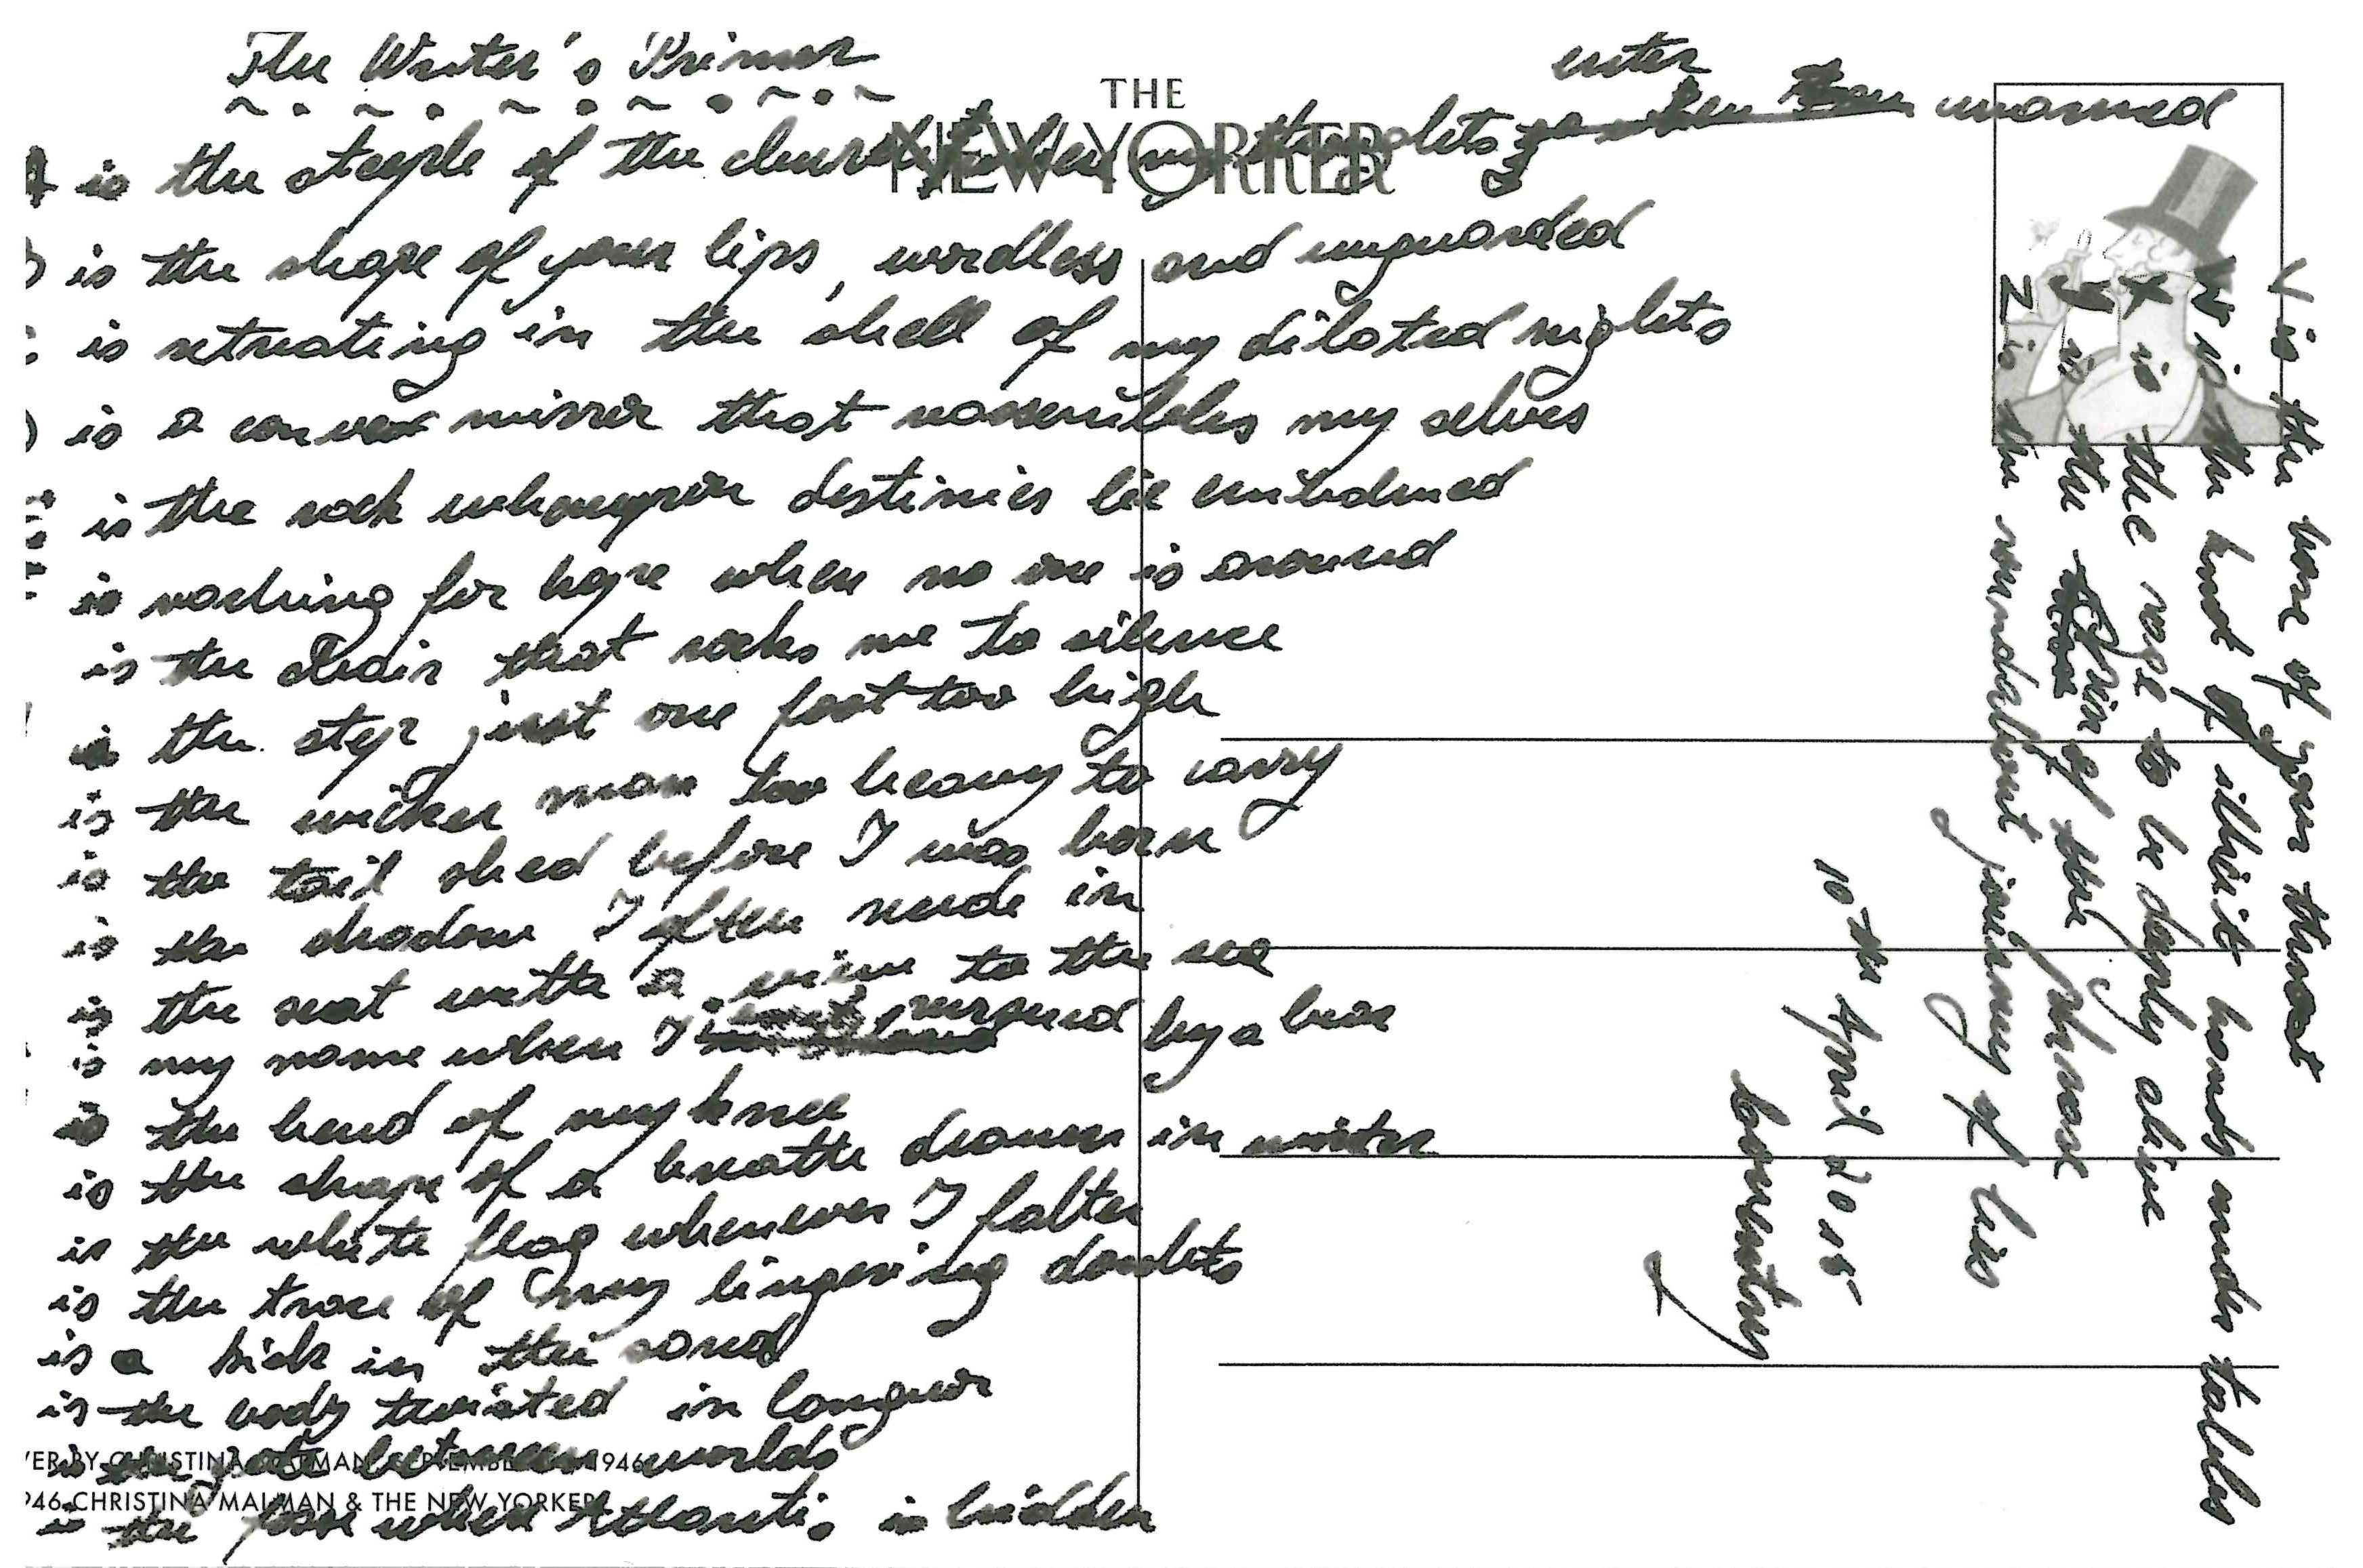 The Writer's Primer
THE
NEW YORKER
enter
A is the steeple of the church when my thoughts go when unarmed
is the shape of your lips, wordless and unguarded
is retreating in the shell of my dilated nights
is a convex mirror that reassembles my selves
is the rock whereupon destinies lie embalmed
is reaching for hope when no one is around
is the chair that rocks me to silence
is the step just one foot too high
is the wicker man too heavy to carry
is the tail shed before I was born
is the shadow I often reside in
is the seat with a view to the sea
is my name when I pursued by a bear
is the bend of my knee
is the shape of a breath drawn in winter
is the white flag whenever I falter
is the trace of my lingering doubts
is a kick in the sand
is the body twisted in languor
is the gate between worlds
VER BY CHRISTINA MALMAN, SEPTEMBER 1946
946 CHRISTINA MALMAN & THE NEW YORKER
is the where Atlantis is hidden
V is the base of your throat
W is the knot of illicit hands under tables
X is the rage to be deeply alive
Y is the of the phrase
Z is the roundabout journey of lies
10th April 2015